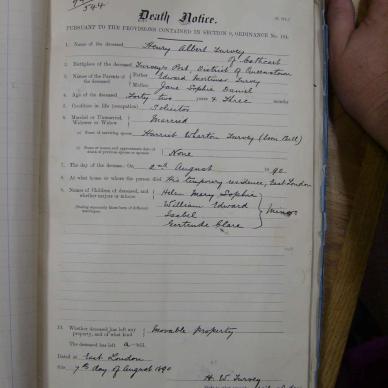 544
Death Notice.
PURSUANT TO THE PROVISIONS CONTAINED IN SECTION 9, ORDINANCE No. 104.
1. Name of the deceased Henry Albert Turvey
of Cathcart
2. Birthplace of the deceased Turvey's Post, District of Queenstown
3. Names of the Parents of the deceased { Father Edward Mortimer Turvey
Mother Jane Sophia Daniel
4. Age of the deceased Forty two years & Three months
5. Condition in life (occupation) Solicitor
6. Married or Unmarried, Widower or Widow } Married
a) Name of surviving spouse Harriet Wharton Turvey (born Bell)
None
7. The day of the decease: On 2nd August 1890
8. At what house or where the person died His temporary residence, East London
9. Names of Children of deceased, and whether majors or minors
Helen Mary Sophia
William Edward
Isabel
Gertrude Clare
} Minors
10. Whether deceased has left any property, and of what kind } Movable Property
The deceased has left a will.
Dated at East London
this 7th day of August 1890
H. W. Turvey